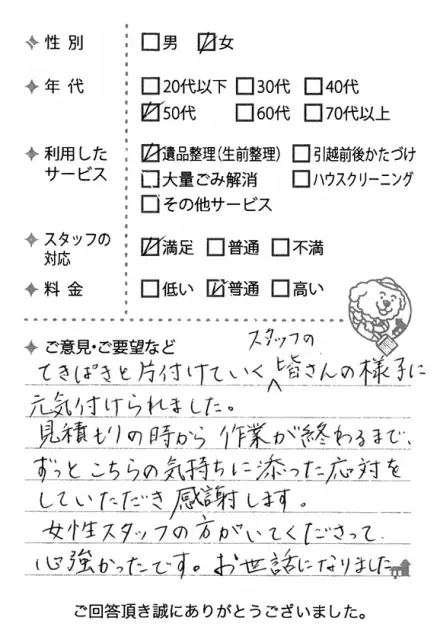 性別 □男 ☑女
年代 □20代以下 □30代 □40代
☑50代 □60代 □70代以上
利用したサービス ☑遺品整理(生前整理) □引越前後かたづけ
□大量ごみ解消 □ハウスクリーニング
□その他サービス
スタッフの対応 ☑満足 □普通 □不満
料金 □低い ☑普通 □高い
ご意見・ご要望など
スタッフの
てきぱきと片付けていく皆さんの様子に
元気付けられました。
見積もりの時から作業が終わるまで、
ずっとこちらの気持ちに添った応対を
していただき感謝します。
女性スタッフの方がいてくださって
心強かったです。お世話になりました。
ご回答頂き誠にありがとうございました。